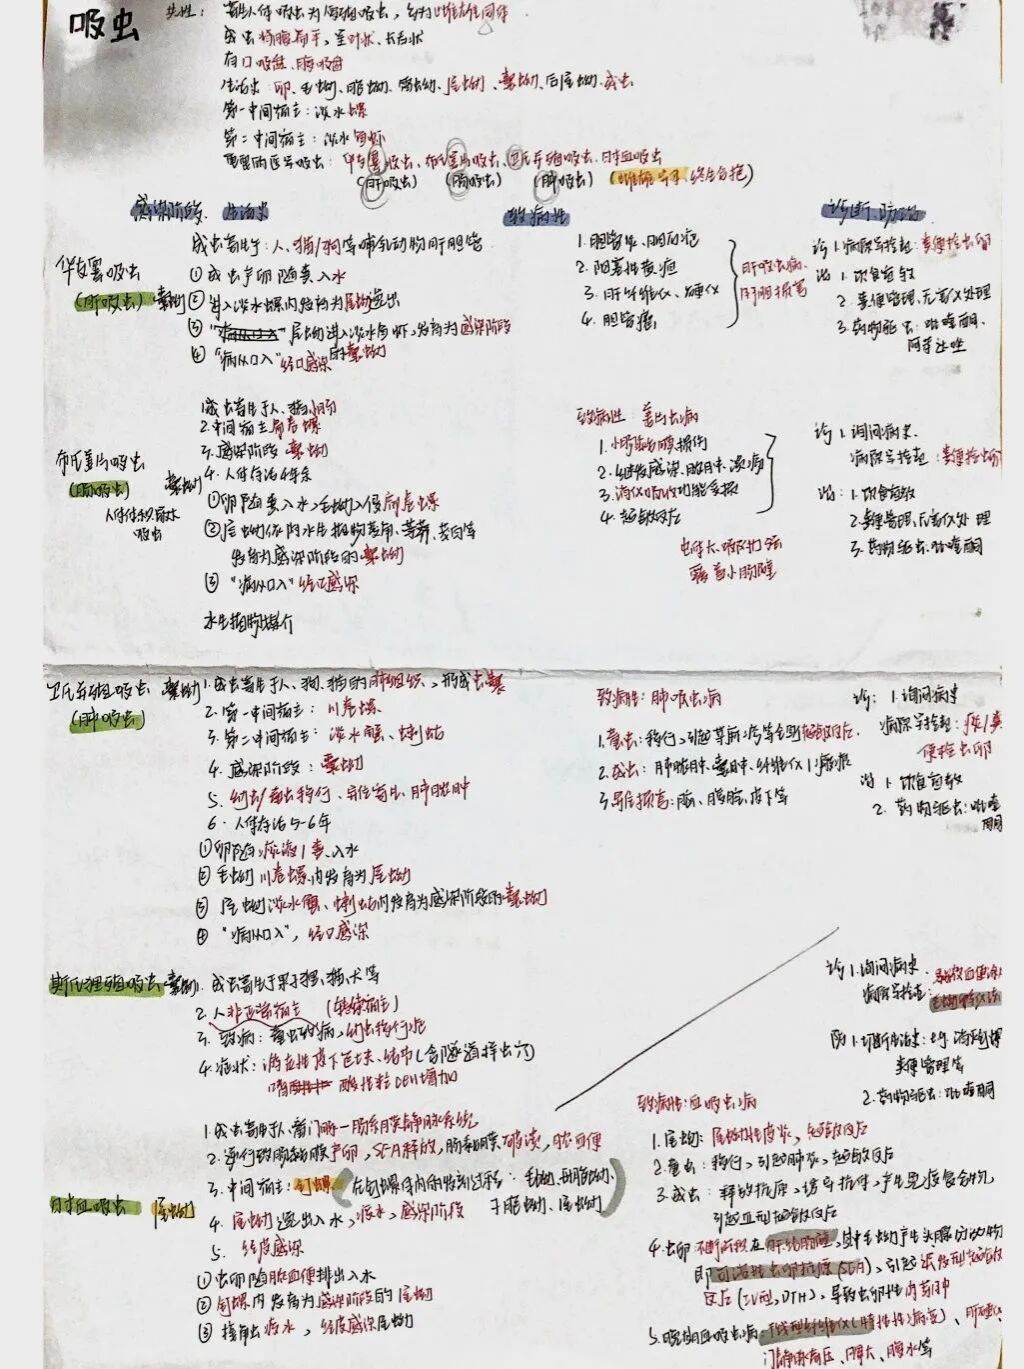 吸虫
共性：寄生人体吸虫为复殖吸虫，多为雌雄同体
成虫背腹扁平，呈叶状、长舌状
有口吸盘、腹吸盘
生活史：卵、毛蚴、胞蚴、雷蚴、尾蚴、囊蚴、后尾蚴、成虫
第一中间宿主：淡水螺
第二中间宿主：淡水鱼虾
重要的医学吸虫：华支睾吸虫、布氏姜片吸虫、卫氏并殖吸虫、日本血吸虫
(肝吸虫) (肠吸虫) (肺吸虫) (雌雄异体 终生合抱)
感染阶段、生活史 致病性 诊断 防治
华支睾吸虫
(肝吸虫) 囊蚴
成虫寄生于：人、猫/狗等哺乳动物肝胆管
① 成虫产卵随粪入水
② 进入淡水螺内发育为尾蚴逸出
③ 尾蚴进入淡水鱼虾，发育为感染阶段的囊蚴
④ "病从口入" 经口感染
1. 胆管炎、胆石症
2. 阻塞性黄疸
3. 肝纤维化、硬化
4. 胆管癌
肝吸虫病、肝胆损害
诊 1. 病原学检查：粪便检出卵
治 1. 饮食自救
2. 粪便管理、无害化处理
3. 药物驱虫：吡喹酮、
阿苯达唑
布氏姜片吸虫
(肠吸虫) 囊蚴
人体体积最大
吸虫
1. 成虫寄生于人、猪小肠
2. 中间宿主扁卷螺
3. 感染阶段 囊蚴
4. 人体存活
① 卵随粪入水，毛蚴入侵扁卷螺
② 尾蚴依附水生植物荸荠、茭白等
发育为感染阶段的囊蚴
③ "病从口入" 经口感染
水生植物媒介
致病性：姜片虫病
1. 小肠黏膜损伤
2. 继发感染、脓肿、溃疡
3. 消化吸收功能受损
4. 超敏反应
虫体大 吸附力强
覆盖小肠壁
诊 1. 询问病史
病原学检查：粪便检出卵
治：1. 饮食自救
2. 粪便管理、无害化处理
3. 药物驱虫：吡喹酮
卫氏并殖吸虫 囊蚴
(肺吸虫)
1. 成虫寄生于人、狗、猫的肺组织，形成虫囊
2. 第一中间宿主：川卷螺
3. 第二中间宿主：淡水蟹、蝲蛄
4. 感染阶段：囊蚴
5. 幼虫/童虫移行、异位寄生、肺脓肿
6. 人体存活5-6年
① 卵随痰液/粪入水
② 毛蚴川卷螺内发育为尾蚴
③ 尾蚴淡水蟹、蝲蛄内发育为感染阶段的囊蚴
④ "病从口入"，经口感染
致病性：肺吸虫病
1. 童虫：移行，引起荨麻疹等全身超敏反应
2. 成虫：肺脓肿、囊肿、纤维化/瘢痕
3. 异位损害：脑、腹腔、皮下等
诊：1. 询问病史
病原学检查：痰/粪
便检出卵
治 1. 饮食自救
2. 药物驱虫：吡喹
酮
斯氏狸殖吸虫 囊蚴
1. 成虫寄生于果子狸、猫、犬等
2. 人非正常宿主 (转续宿主)
3. 致病：童虫致病，幼虫移行症
4. 症状：游走性皮下包块、结节(含隧道样虫穴)
嗜酸性粒cell增加
诊 1. 询问病史、
病原学检查：
防 1. 切断生活史：
粪便管理等
2. 药物驱虫：吡喹酮
日本血吸虫 尾蚴
1. 成虫寄生于人、畜门脉-肠系膜静脉系统
2. 逆行致肠黏膜产卵，SEA释放，肠黏膜破溃，脓血便
3. 中间宿主：钉螺 (在钉螺体内的发育过程：毛蚴、母胞蚴、
子胞蚴、尾蚴)
4. 尾蚴逸出入水，疫水，感染阶段
5. 经皮感染
① 虫卵随脓血便排出入水
② 钉螺内发育为感染阶段的尾蚴
③ 接触疫水，经皮感染尾蚴
致病性：血吸虫病
1. 尾蚴：尾蚴性皮炎，超敏反应
2. 童虫：移行，引起肺炎，超敏反应
3. 成虫：释放抗原，诱导抗体，产生免疫复合物，
引起Ⅲ型超敏反应
4. 虫卵不断沉积在肝结肠壁，其中毛蚴产生头腺分泌物
即可溶性虫卵抗原(SEA)，引起迟发型超敏
反应(Ⅳ型，DTH)，导致虫卵性肉芽肿
5. 晚期血吸虫病：干线型纤维化(特征性病变)、肝硬化、
门静脉高压、脾大、腹水等